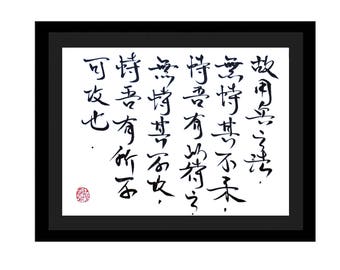 故用兵之法，
無恃其不來，
恃吾有以待之，
無恃其不攻，
恃吾有所不
可攻也．